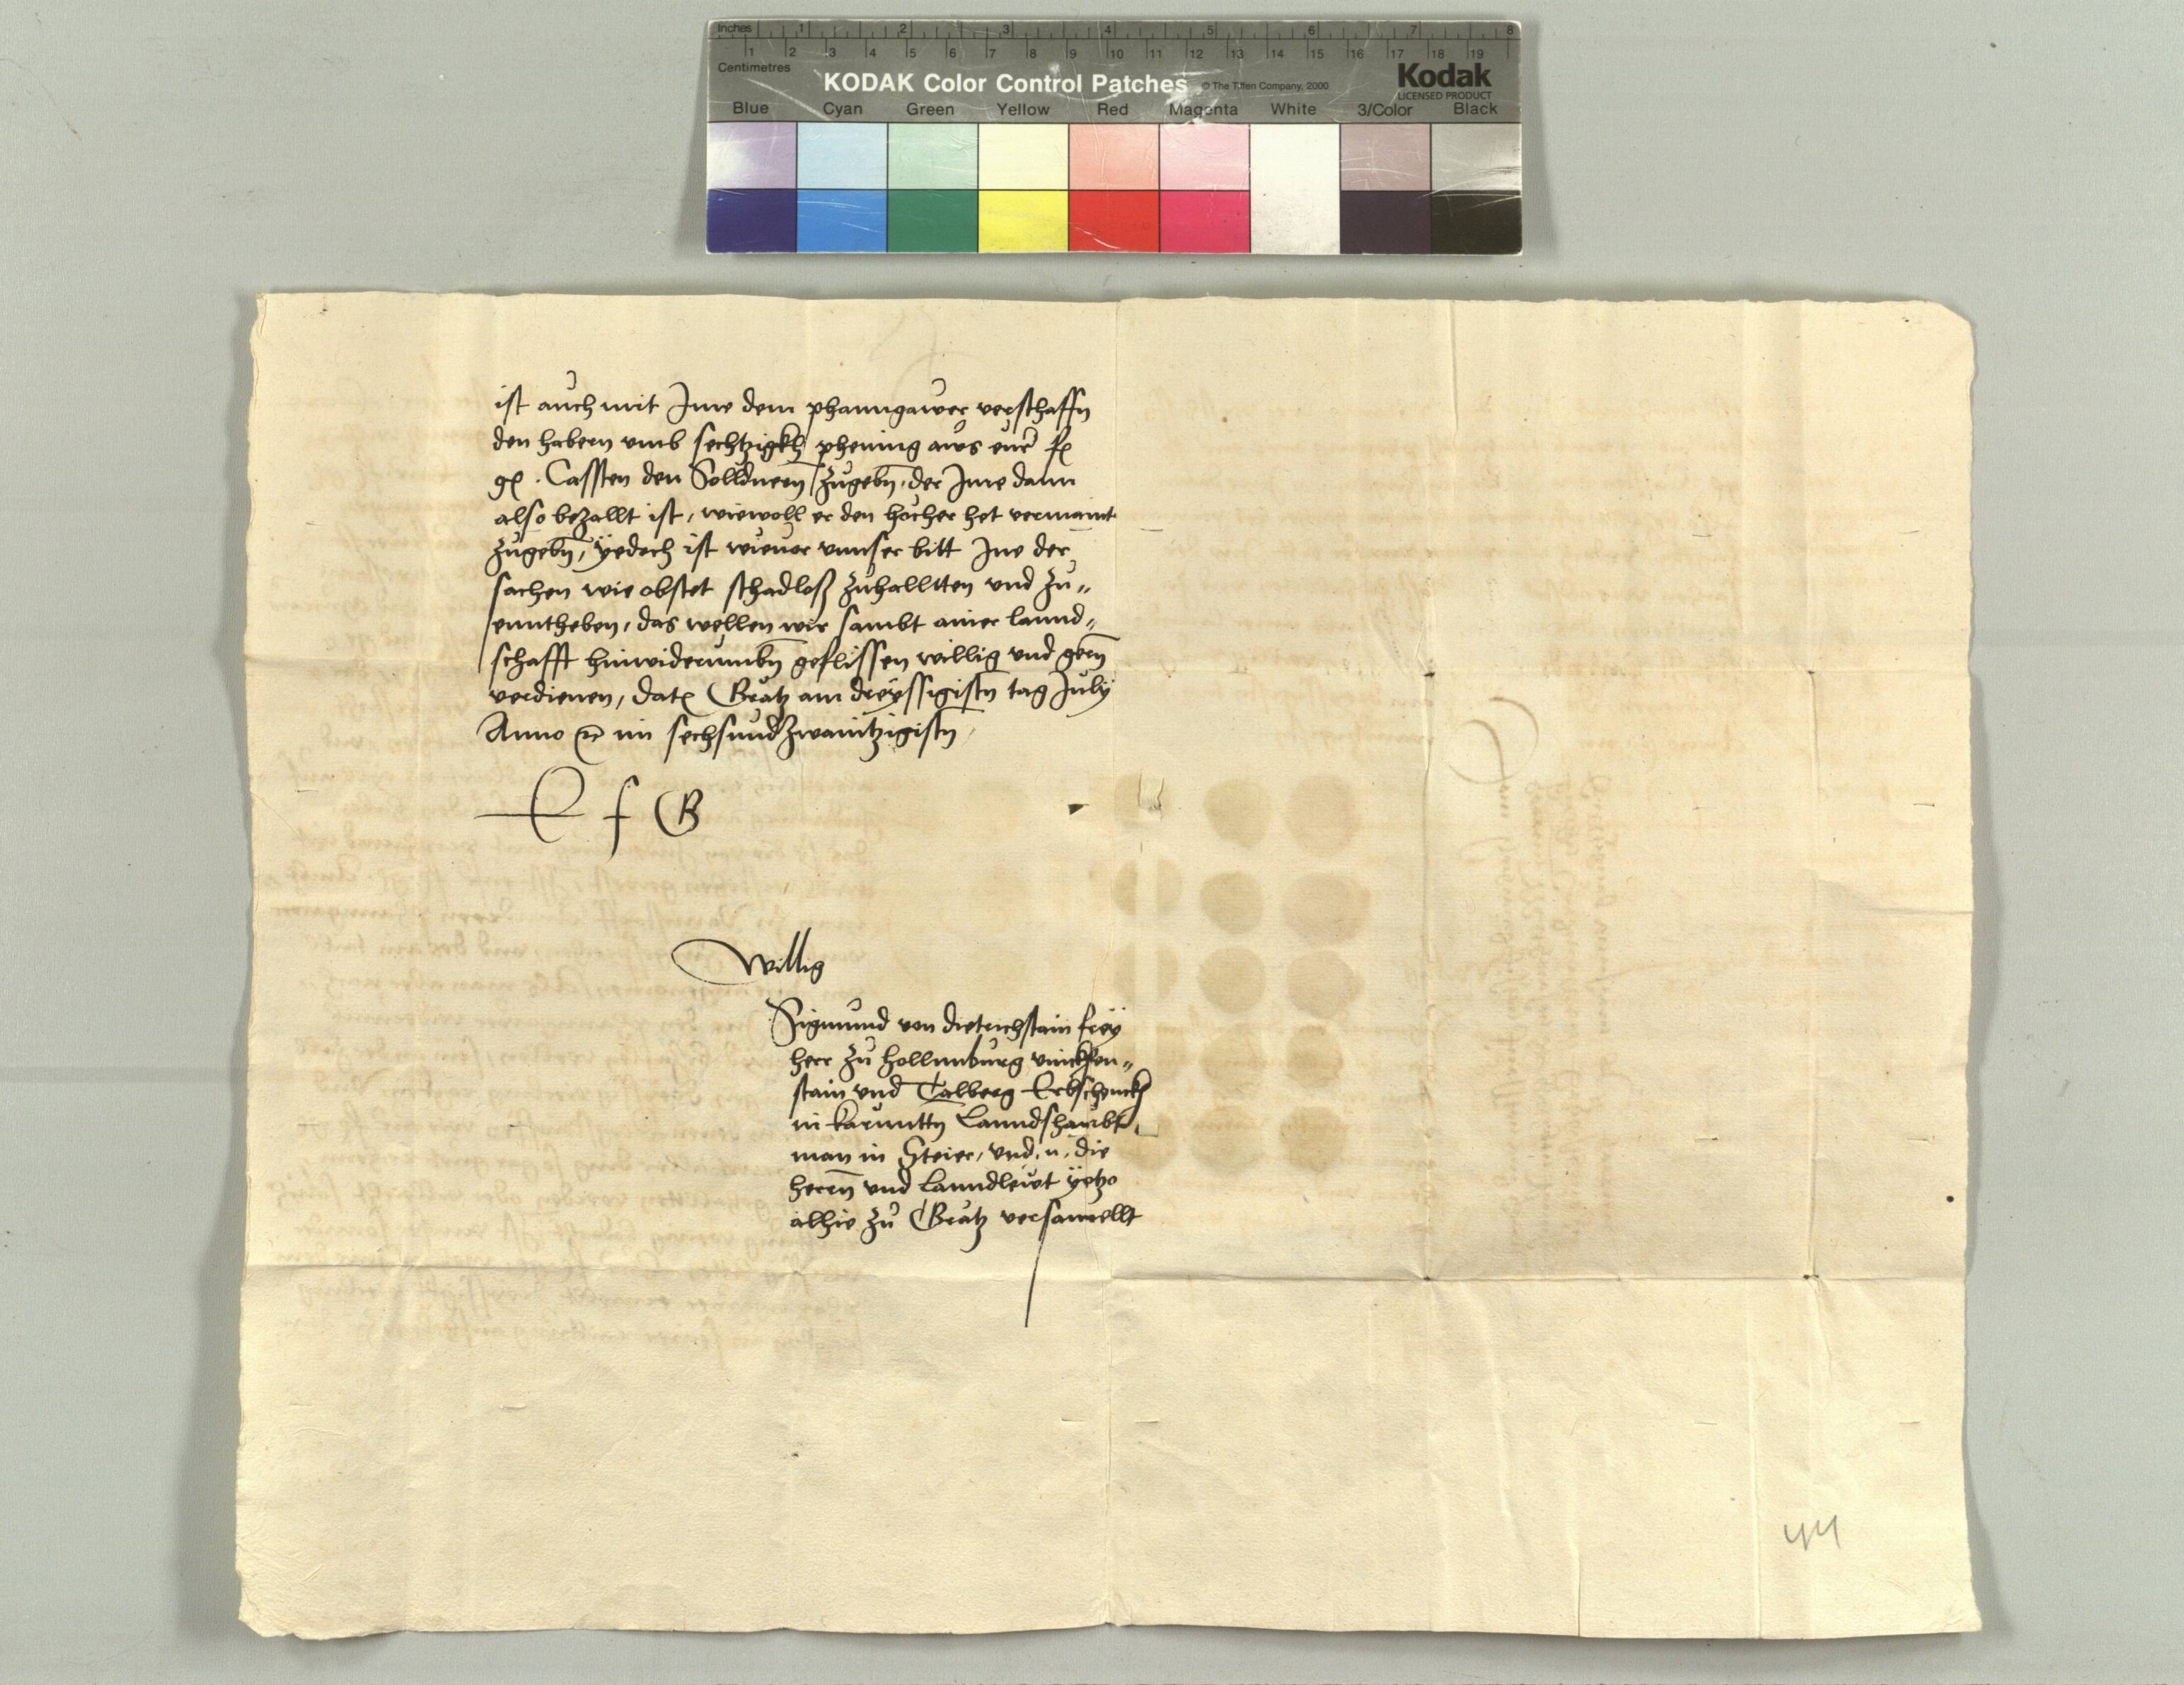 Inches 1 2 3 4 5 6 7 8
1 2 3 4 5 6 7 8 9 10 11 12 13 14 15 16 17 18 19
Centimetres
KODAK Color Control Patches © The Tiffen Company, 2000 Kodak
LICENSED PRODUCT
Blue Cyan Green Yellow Red Magenta White 3/Color Black
ist auch mit Ime dem phanngawer verschaffn
den habern umb sechtzigkh phening aws eur f
g. Cassten den Solldnern zugebn, der Ime dann
also bezallt ist, wiewoll er den hocher het vermaint
zugebn, yedoch ist unnser bitt Ine der
sachen wie obstet schadloß zuhalltten und zu„
enntheben, das wellen wir sambt ainer lannd„
schafft hinwiderumbn geflissen willig und gern
verdienen, Dat Grätz am dreyssigistn tag July
Anno im sechsundzwaintzigistn
E f G
willig
Sigmund von dietrichstain frey
herr zu hollnnburg vinckhen„
stain und Talberg Erbschenckh
in karnntn Lanndshaubt„
man in Steier, und, n, die
herrn und Lanndlewt yetzo
alhie zu Grätz versamellt
44